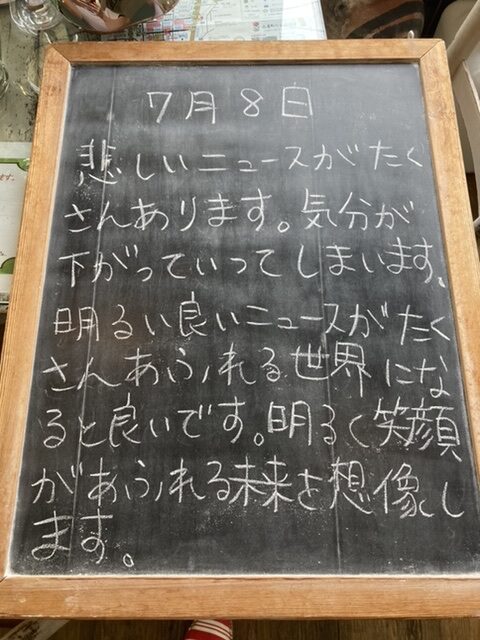 7月8日
悲しいニュースがたく
さんあります。気分が
下がっていってしまいます。
明るい良いニュースがたく
さんあふれる世界にな
ると良いです。明るく笑顔
があふれる未来を想像し
ます。